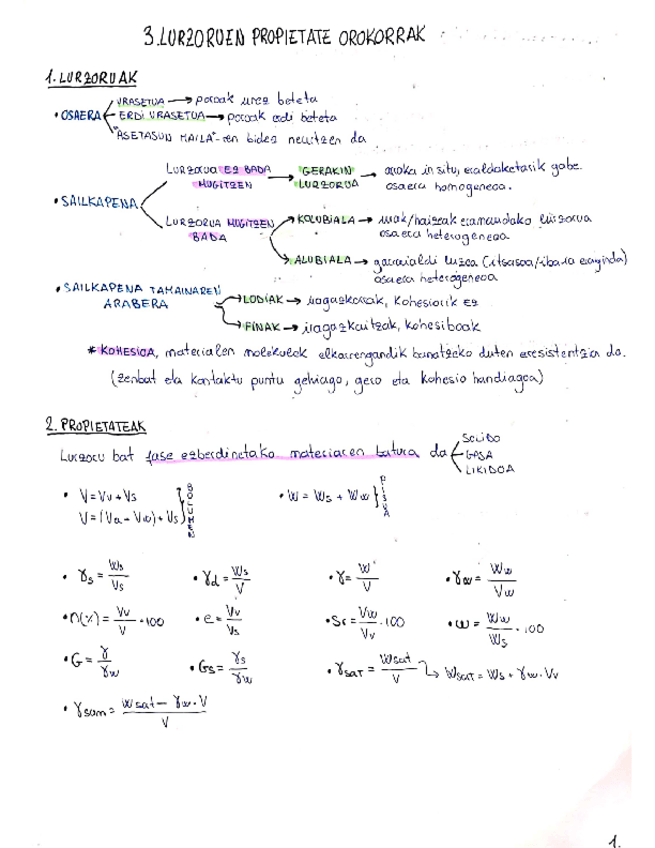 3. LURZORUEN PROPIETATE OROKORRAK
1. LURZORUAK
• OSAERA
URASETUA → poroak urez beteta
ERDI URASETUA → poroak erdi beteta
"ASETASUN MAILA"-ren bidez neurtzen da
• SAILKAPENA
LURZORUA EZ BADA MUGITZEN → GERAKIN LURZORUA → arroka in situ, eraldaketarik gabe.
osaera homogeneoa.
LURZORUA MUGITZEN BADA
KOLUBIALA → urak/haizeak eramandako lurzorua
osaera heterogeneoa
ALUBIALA → garraialdi luzea (itsasoa/ibaia eraginda)
osaera heterogeneoa
• SAILKAPENA TAMAINAREN ARABERA
LODIAK → iragazkorrak, kohesiorik ez
FINAK → iragazkaitzak, kohesiboak
* KOHESIOA, materialen molekulek elkarrengandik banatzeko duten erresistentzia da.
(zenbat eta kontaktu puntu gehiago, gero eta kohesio handiagoa)
2. PROPIETATEAK
Lurzoru bat fase ezberdinetako materiaren batura da
SOLIDO
GASA
LIKIDOA
• V = Vv + Vs
V = (Va - Vw) + Vs } BOLUMEN
• W = Ws + Ww } PISUA
• γs = Ws/Vs • γd = Ws/V • γ = W/V • γw = Ww/Vw
• n(%) = Vv/V · 100 • e = Vv/Vs • Sr = Vw/Vv · 100 • ω = Ww/Ws · 100
• G = γ/γw • Gs = γs/γw • γSAT = Wsat/V → Wsat = Ws + γw · Vv
• γsum = Wsat - γw · V/V
1.